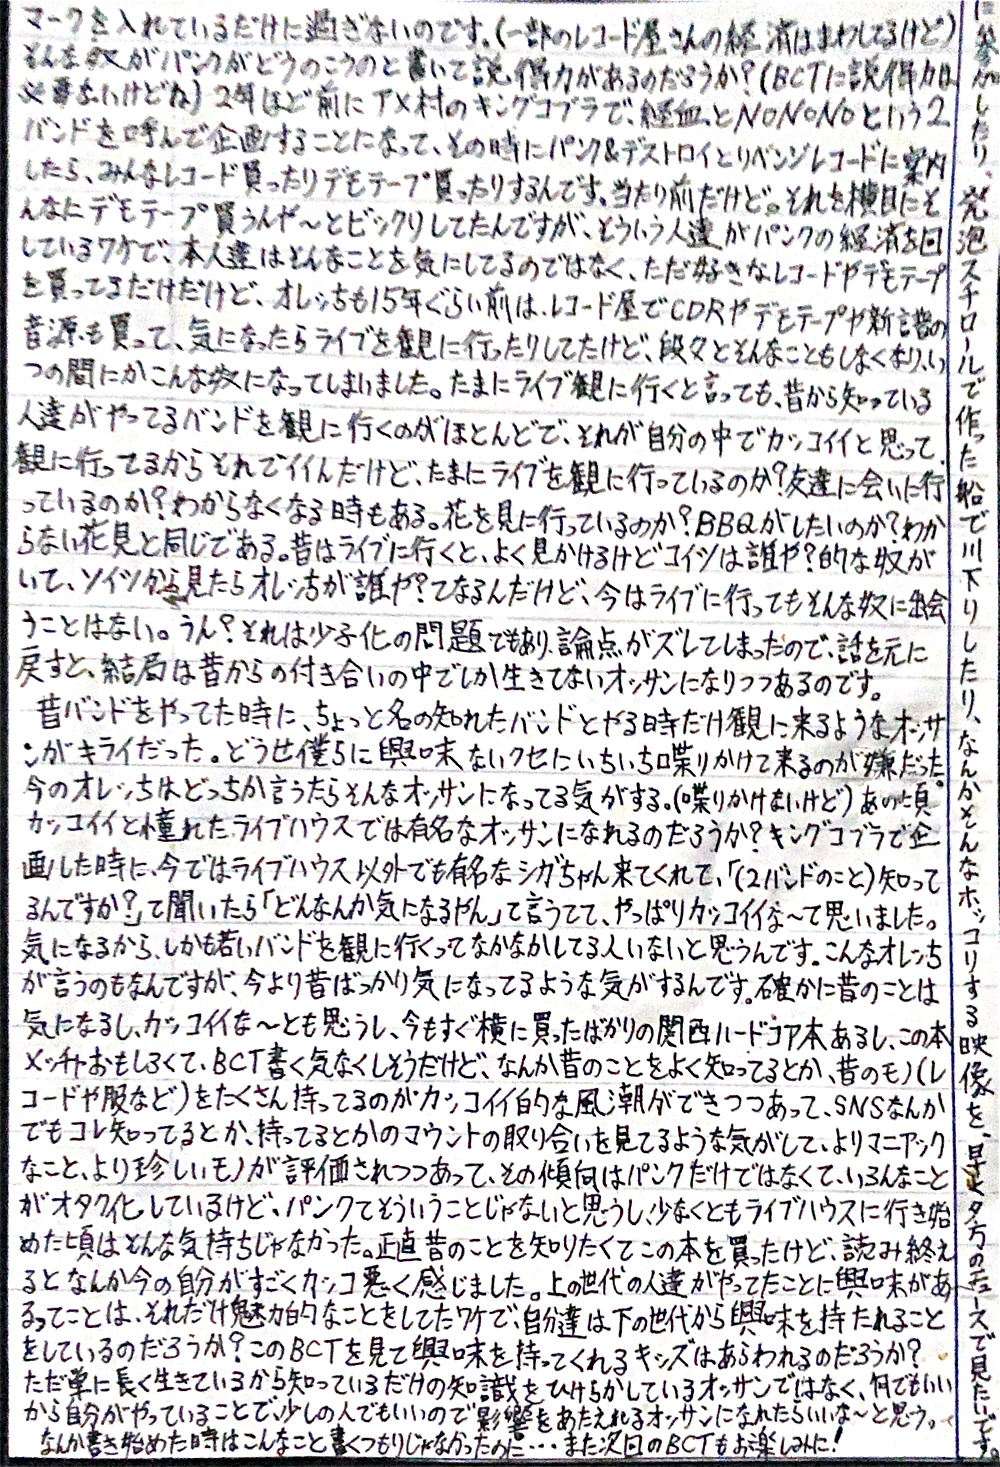 マークを入れているだけに過ぎないのです。(一部のレコード屋さんの経済はまわしてるけど)
そんな奴がパンクがどうのこうのと書いて説得力があるのだろうか?(BCTに説得力は
必要ないけどね)2年ほど前にTX村のキングコブラで、経血とNONONOという2
バンドを呼んで企画することになって、その時にパンク&デストロイとリベンジレコードに案内
したら、みんなレコード買ったりデモテープ買ったりするんです。当たり前だけど。それを横目にそ
んなにデモテープ買うんや〜とビックリしてたんですが、そういう人達がパンクの経済を回
しているワケで、本人達はそんなことを気にしてるのではなく、ただ好きなレコードやデモテープ
を買ってるだけだけど、オレっちも15年ぐらい前は、レコード屋でCDRやデモテープや新譜の
音源も買って、気になったらライブを観に行ったりしてたけど、段々とそんなこともしなくなり、い
つの間にかこんな奴になってしまいました。たまにライブ観に行くと言っても、昔から知っている
人達がやってるバンドを観に行くのがほとんどで、それが自分の中でカッコイイと思って、
観に行ってるからそれでイイんだけど、たまにライブを観に行っているのか?友達に会いに行
っているのか?わからなくなる時もある。花を見に行っているのか?BBQがしたいのか?わか
らない花見と同じである。昔はライブに行くと、よく見かけるけどコイツは誰や?的な奴が
いて、ソイツから見たらオレっちが誰や?てなるんだけど、今はライブに行ってもそんな奴に出会
うことはない。うん?それは少子化の問題でもあり、論点がズレてしまったので、話を元に
戻すと、結局は昔からの付き合いの中でしか生きてないオッサンになりつつあるのです。
昔バンドをやってた時に、ちょっと名の知れたバンドとやる時だけ観に来るようなオッサ
ンがキライだった。どうせ僕らに興味ないクセにいちいち喋りかけて来るのが嫌だった。
今のオレっちはどっちか言うたらそんなオッサンになってる気がする。(喋りかけないけど)あの頃
カッコイイと憧れたライブハウスでは有名なオッサンになれるのだろうか?キングコブラで企
画した時に、今ではライブハウス以外でも有名なシガちゃん来てくれて、「(2バンドのこと)知って
るんですか?」て聞いたら「どんなんか気になるやん」て言うてて、やっぱりカッコイイな〜て思いました。
気になるから、しかも若いバンドを観に行くってなかなかしてる人いないと思うんです。こんなオレっち
が言うのもなんですが、今より昔ばっかり気になってるような気がするんです。確かに昔のことは
気になるし、カッコイイな〜とも思うし、今もすぐ横に買ったばかりの関西ハードコア本あるし、この本
メッチャおもしろくて、BCT書く気なくしそうだけど、なんか昔のことをよく知ってるとか、昔のモノ(レ
コードや服など)をたくさん持ってるのがカッコイイ的な風潮ができつつあって、SNSなんか
でもコレ知ってるとか、持ってるとかのマウントの取り合いを見てるような気がして、よりマニアック
なこと、より珍しいモノが評価されつつあって、その傾向はパンクだけではなくて、いろんなこと
がオタク化しているけど、パンクてそういうことじゃないと思うし、少なくともライブハウスに行き始
めた頃はそんな気持ちじゃなかった。正直昔のことを知りたくてこの本を買ったけど、読み終え
るとなんか今の自分がすごくカッコ悪く感じました。上の世代の人達がやってたことに興味があ
るってことは、それだけ魅力的なことをしてたワケで、自分達は下の世代から興味を持たれること
をしているのだろうか?このBCTを見て興味を持ってくれるキッズはあらわれるのだろうか?
ただ単に長く生きているから知っているだけの知識をひけらかしているオッサンではなく、何でもいい
から自分がやっていることで、少しの人でもいいので影響をあたえれるオッサンになれたらいいな〜と思う。
なんか書き始めた時はこんなこと書くつもりじゃなかったのに…また次回のBCTもお楽しみに!
に参加したり、発泡スチロールで作った船で川下りしたり、なんかそんなホッコリする映像を、早く夕方のニュースで見たいです。